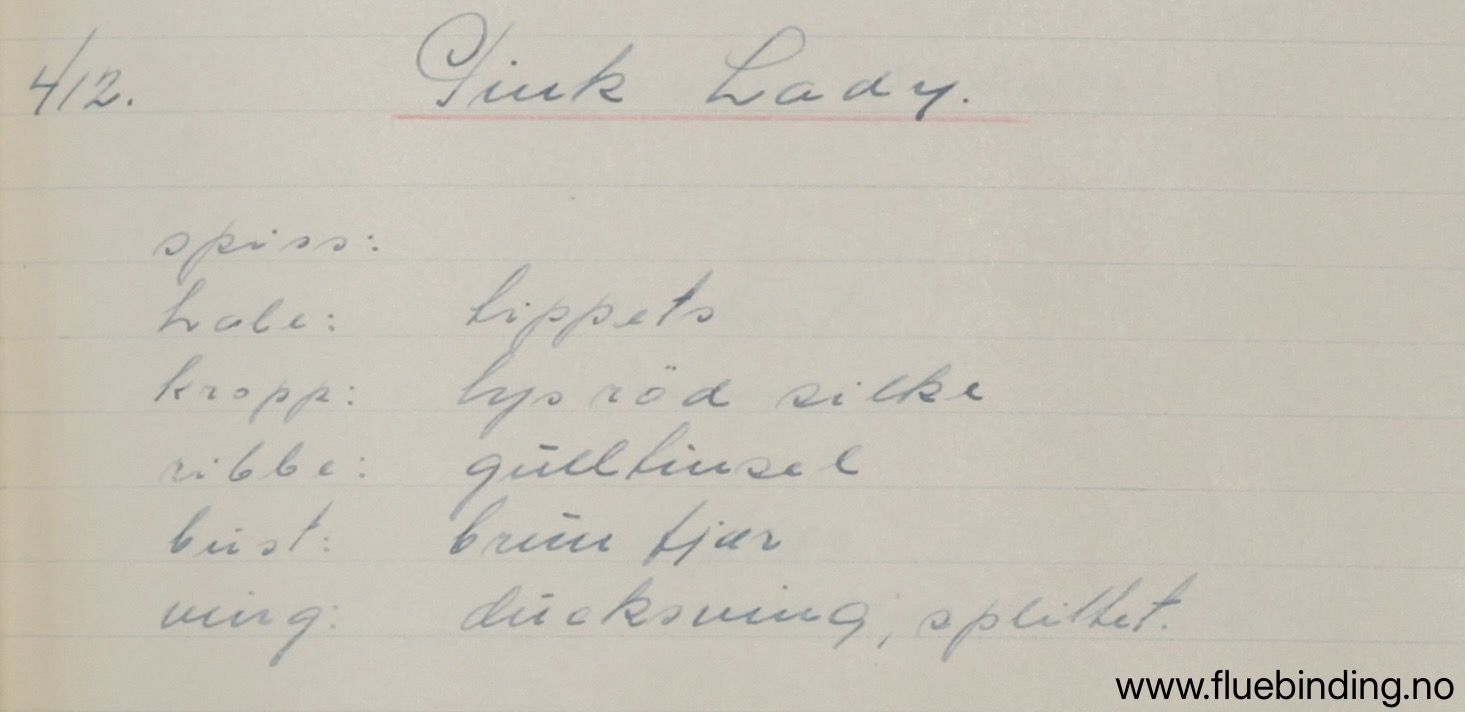 412. Pink Lady.
spiss:
hale: tippets
kropp: lysröd silke
ribbe: gulltinsel
bust: brun fjær
ving: ducksving, splittet.
www.fluebinding.no